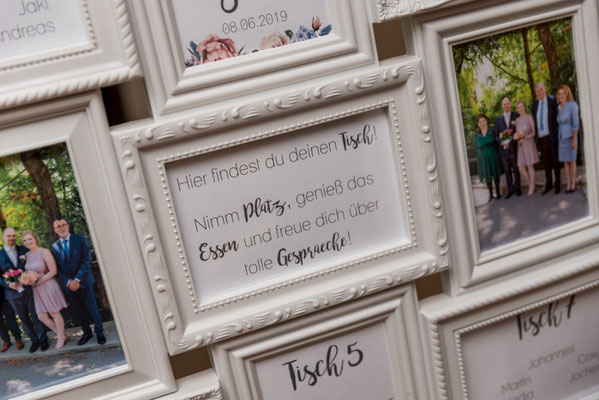 Jaki
Andreas
08.06.2019
Hier findest du deinen Tisch!
Nimm Platz, genieß das
Essen und freue dich über
tolle Gespraeche!
Tisch 5
Tisch 7
Johannes
Martin